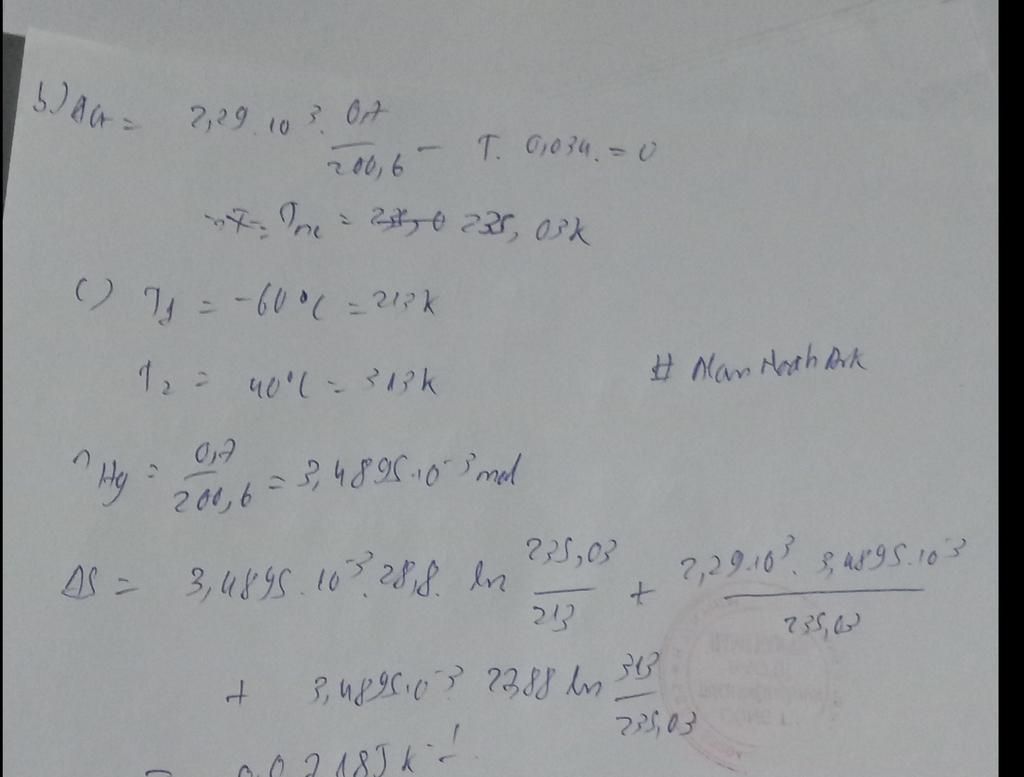 b) ΔG = 2,29.10^3. 0,7/200,6 - T. 0,034. = 0
T_nc = 235,03K
c) T1 = -60°C = 213K
T2 = 40°C = 313K
# Alan Noah Ark
n Hg = 0,7/200,6 = 3,4895.10^-3 mol
ΔS = 3,4895.10^-3. 28,8. ln 235,03/213 + 2,29.10^3. 3,4895.10^-3/235,03
+ 3,4895.10^-3 27,88 ln 313/235,03
J K^-1.